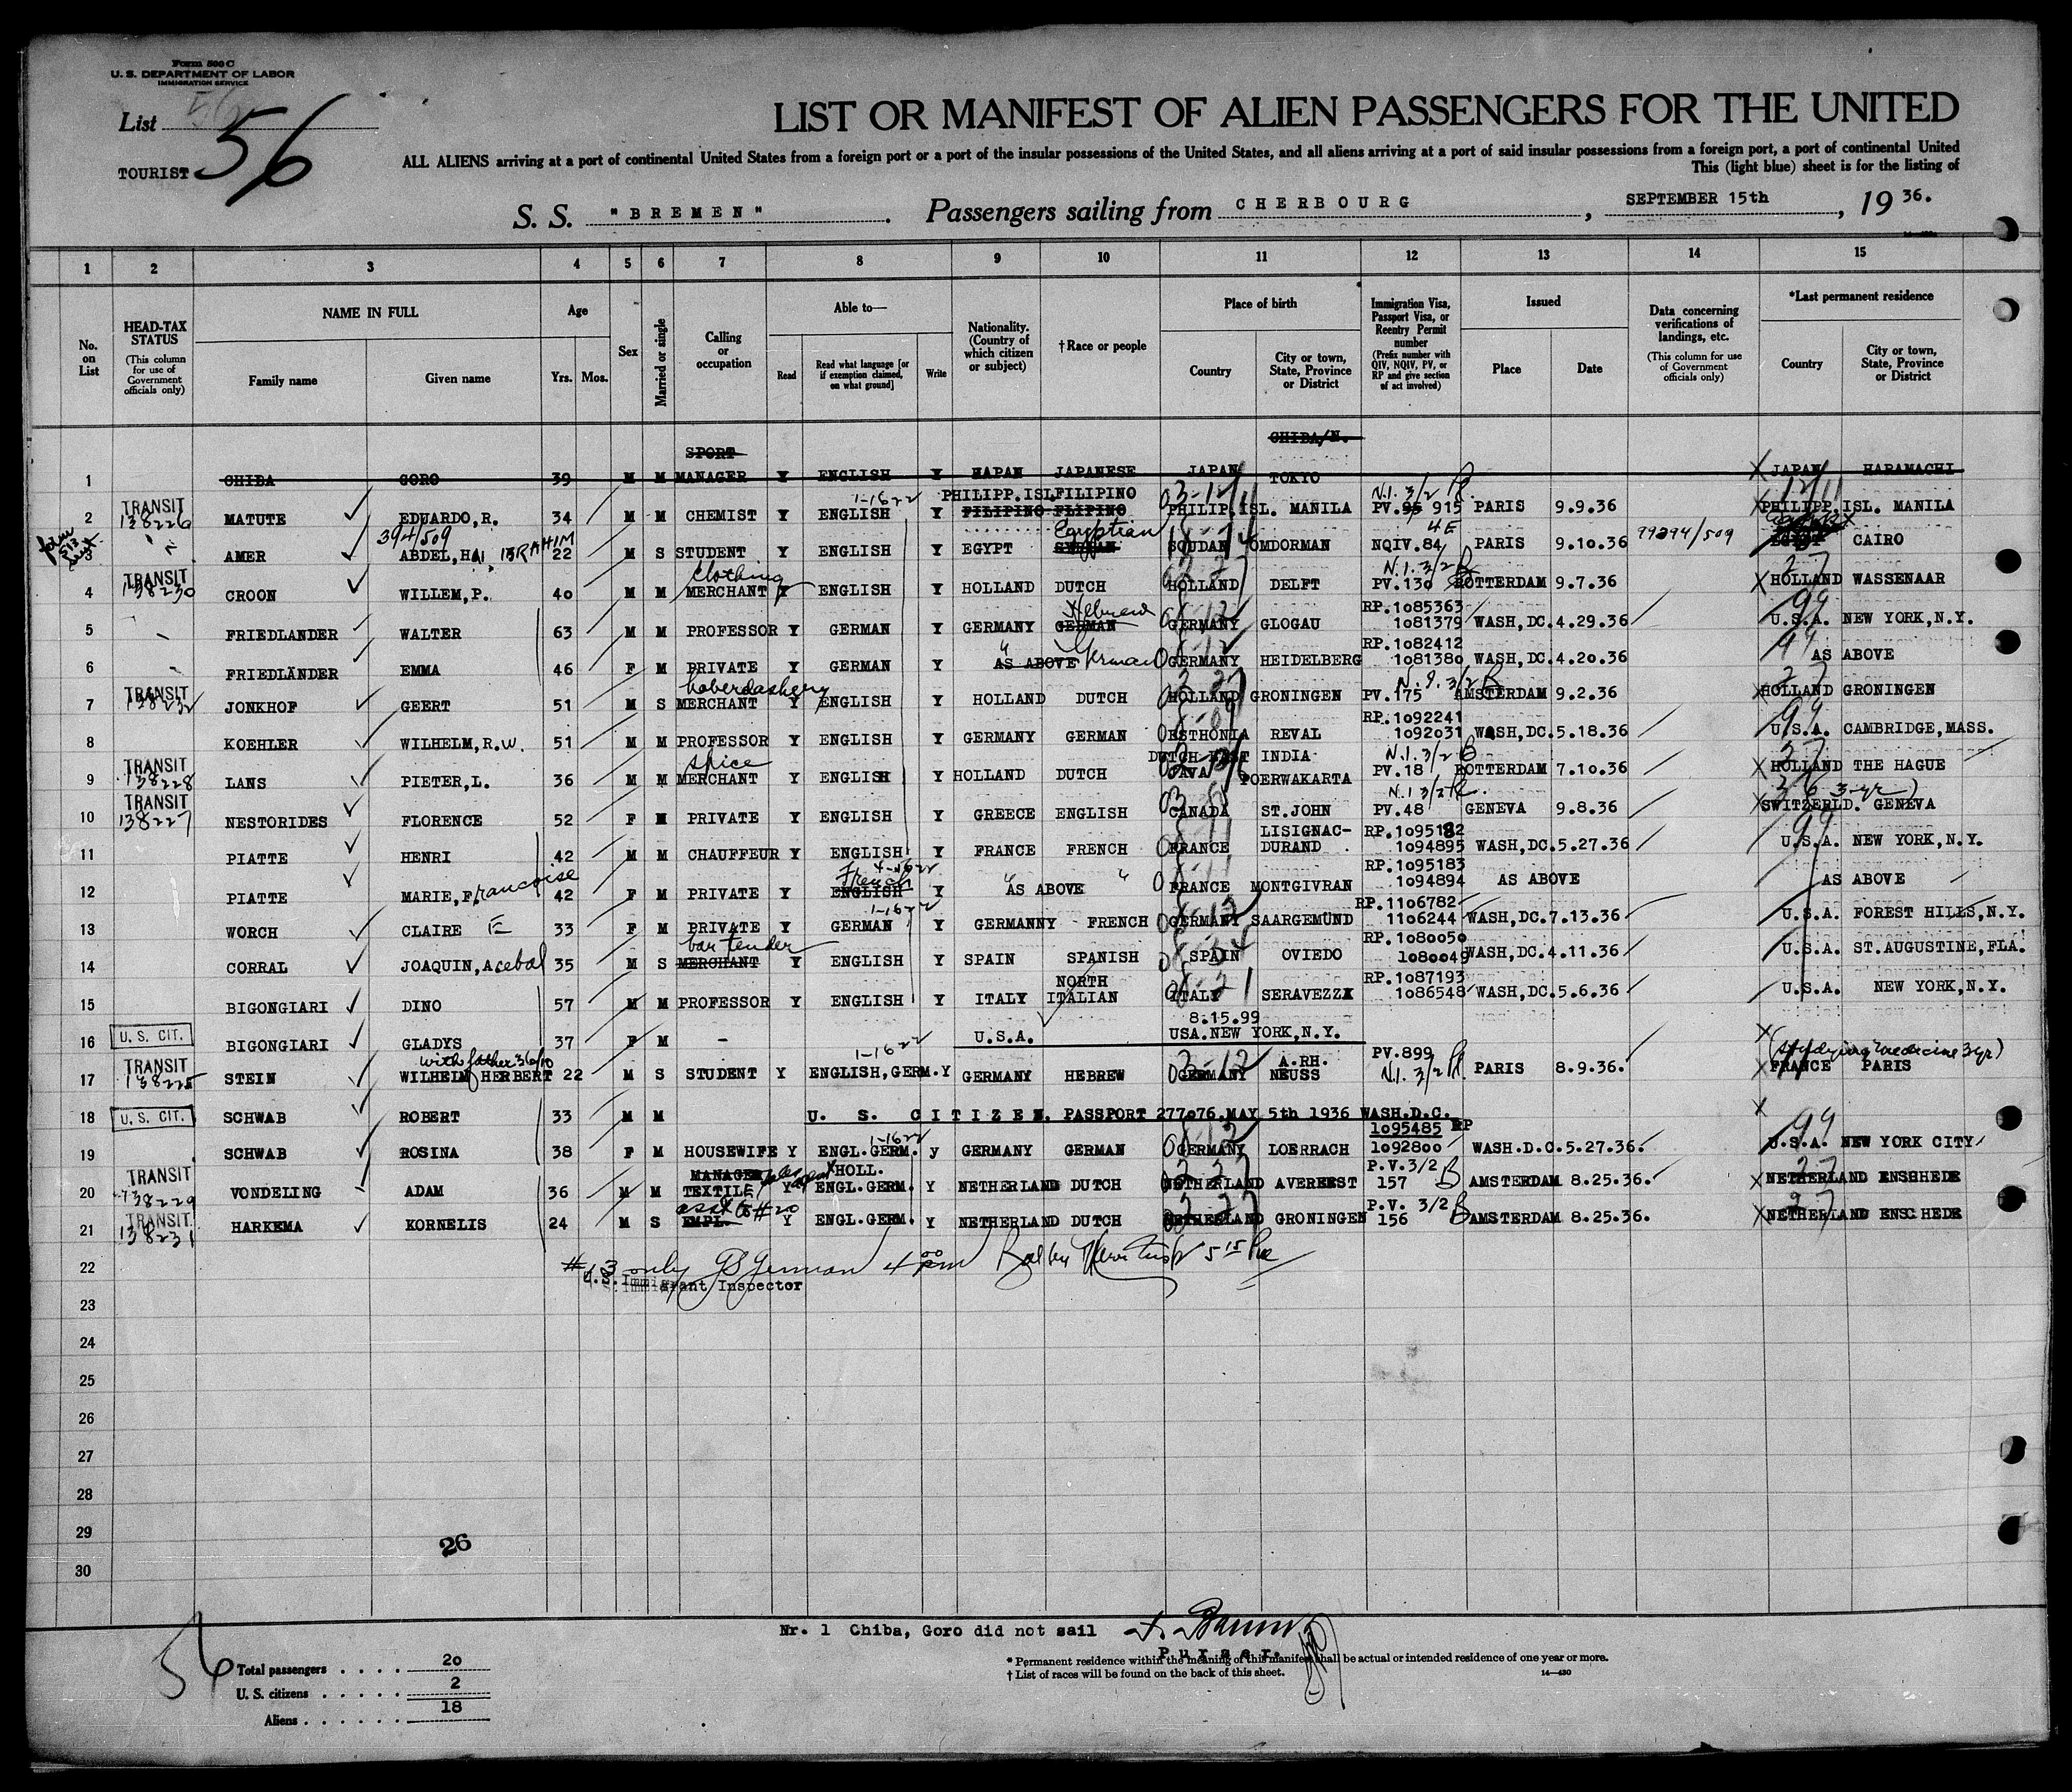 Form 500 C
U. S. DEPARTMENT OF LABOR
IMMIGRATION SERVICE
List 56
56
TOURIST
LIST OR MANIFEST OF ALIEN PASSENGERS FOR THE UNITED
ALL ALIENS arriving at a port of continental United States from a foreign port or a port of the insular possessions of the United States, and all aliens arriving at a port of said insular possessions from a foreign port, a port of continental United
This (light blue) sheet is for the listing of
S. S. "BREMEN". Passengers sailing from CHERBOURG, SEPTEMBER 15th, 19 36.
1 2 3 4 5 6 7 8 9 10 11 12 13 14 15
No. on List
HEAD-TAX STATUS
(This column for use of Government officials only)
NAME IN FULL
Family name Given name
Age
Yrs. Mos.
Sex
Married or single
Calling or occupation
Able to—
Read
Read what language [or if exemption claimed, on what ground]
Write
Nationality. (Country of which citizen or subject)
†Race or people
Place of birth
Country
City or town, State, Province or District
Immigration Visa, Passport Visa, or Reentry Permit number
(Prefix number with QIV, NQIV, PV, or RP and give section of act involved)
Issued
Place Date
Data concerning verifications of landings, etc.
(This column for use of Government officials only)
*Last permanent residence
Country
City or town, State, Province or District
CHIBA/N.
SPORT
1 CHIBA GORO 39 M M MANAGER Y ENGLISH Y HAPAN JAPANESE JAPAN TOKYO JAPAN HARAMACHI
TRANSIT 1-1622 PHILIPP.ISL. FILIPINO 03-12/11 N.I. 3/2 12/11
2 138226 MATUTE EDUARDO,R. 34 M M CHEMIST Y ENGLISH Y FILIPINO FLIPINO PHILIP.ISL. MANILA PV.95 915 PARIS 9.9.36 PHILIPP.ISL. MANILA
394/509 Egyptian 4E
3 AMER ABDEL,HAI, IBRAHIM 22 M S STUDENT Y ENGLISH Y EGYPT SYRIAN SOUDAN OMDORMAN NQIV.84 PARIS 9.10.36 99294/509 EGYPT CAIRO
TRANSIT clothing N.I. 3/2 B 27
4 138230 CROON WILLEM,P. 40 M M MERCHANT Y ENGLISH Y HOLLAND DUTCH HOLLAND DELFT PV.130 ROTTERDAM 9.7.36 HOLLAND WASSENAAR
Hebrew RP.1085363 99
5 FRIEDLANDER WALTER 63 M M PROFESSOR Y GERMAN Y GERMANY GERMAN GERMANY GLOGAU 1081379 WASH,DC.4.29.36 U.S.A. NEW YORK,N.Y.
RP.1082412 99
6 FRIEDLÄNDER EMMA 46 F M PRIVATE Y GERMAN Y " AS ABOVE German GERMANY HEIDELBERG 1081380 WASH,DC.4.20.36 AS ABOVE
TRANSIT haberdashery N.I. 3/2 B 27
7 138232 JONKHOF GEERT 51 M S MERCHANT Y ENGLISH Y HOLLAND DUTCH HOLLAND GRONINGEN PV.175 AMSTERDAM 9.2.36 HOLLAND GRONINGEN
RP.1092241 99
8 KOEHLER WILHELM,R.W. 51 M M PROFESSOR Y ENGLISH Y GERMANY GERMAN ESTHONIA REVAL 1092031 WASH,DC.5.18.36 U.S.A. CAMBRIDGE,MASS.
TRANSIT spice DUTCH EAST INDIA N.I. 3/2 B 27
9 138228 LANS PIETER,L. 36 M M MERCHANT Y ENGLISH Y HOLLAND DUTCH JAVA POERWAKARTA PV.18 ROTTERDAM 7.10.36 HOLLAND THE HAGUE
TRANSIT N.I 3/2 B. 36 3-yr)
10 138227 NESTORIDES FLORENCE 52 F M PRIVATE Y ENGLISH Y GREECE ENGLISH CANADA ST.JOHN PV.48 GENEVA 9.8.36 SWITZERLD. GENEVA
LISIGNAC- RP.1095182 99
11 PIATTE HENRI 42 M M CHAUFFEUR Y ENGLISH Y FRANCE FRENCH FRANCE DURAND 1094895 WASH,DC.5.27.36 U.S.A. NEW YORK,N.Y.
French 4-1622 RP.1095183
12 PIATTE MARIE,Francoise 42 F M PRIVATE Y ENGLISH Y " AS ABOVE " FRANCE MONTGIVRAN 1094894 AS ABOVE AS ABOVE
1-1622 RP.1106782
13 WORCH CLAIRE E 33 F M PRIVATE Y GERMAN Y GERMANNY FRENCH GERMANY SAARGEMÜND 1106244 WASH,DC.7.13.36 U.S.A. FOREST HILLS,N.Y.
bartender RP.1080050
14 CORRAL JOAQUIN,Acebal 35 M S MERCHANT Y ENGLISH Y SPAIN SPANISH SPAIN OVIEDO 1080049 WASH,DC.4.11.36 U.S.A. ST.AUGUSTINE,FLA.
NORTH RP.1087193
15 BIGONGIARI DINO 57 M M PROFESSOR Y ENGLISH Y ITALY ITALIAN ITALY SERAVEZZA 1086548 WASH,DC.5.6.36 U.S.A. NEW YORK,N.Y.
8.15.99
16 U. S. CIT. BIGONGIARI GLADYS 37 F M - U.S.A. USA.NEW YORK,N.Y.
TRANSIT with father 36/10 1-1622 A.RH. PV.899 (studying medicine 3yr)
17 138225 STEIN WILHELM HERBERT 22 M S STUDENT Y ENGLISH,GERM.Y GERMANY HEBREW GERMANY NEUSS N.I. 3/2 PARIS 8.9.36. FRANCE PARIS
18 U. S. CIT. SCHWAB ROBERT 33 M M U. S. CITIZEN. PASSPORT 277076.MAY 5th 1936 WASH.D.C.
1-1622 1095485 RP 99
19 SCHWAB ROSINA 38 F M HOUSEWIFE Y ENGL.GERM. y GERMANY GERMAN GERMANY LOERRACH 1092800 WASH.D.C.5.27.36. U.S.A. NEW YORK CITY
TRANSIT MANAGER HOLL. P.V.3/2 B 27
20 138229 VONDELING ADAM 36 M M TEXTILE Y ENGL.GERM. Y NETHERLAND DUTCH NETHERLAND AVEREEST 157 AMSTERDAM 8.25.36. NETHERLAND ENSHHEDE
TRANSIT asst to #20 P.V. 3/2 B 27
21 138231 HARKEMA KORNELIS 24 M S EMPL. Y ENGL.GERM. Y NETHERLAND DUTCH NETHERLAND GRONINGEN 156 AMSTERDAM 8.25.36. NETHERLAND ENSCHEDE
22 #3 only
U.S. Immigrant Inspector
23
24
25
26
27
28
29
30
26
Nr. 1 Chiba, Goro did not sail
Purser.
56
Total passengers . . . . 20
U. S. citizens . . . . . 2
Aliens . . . . . . 18
* Permanent residence within the meaning of this manifest shall be actual or intended residence of one year or more.
† List of races will be found on the back of this sheet.
14—430